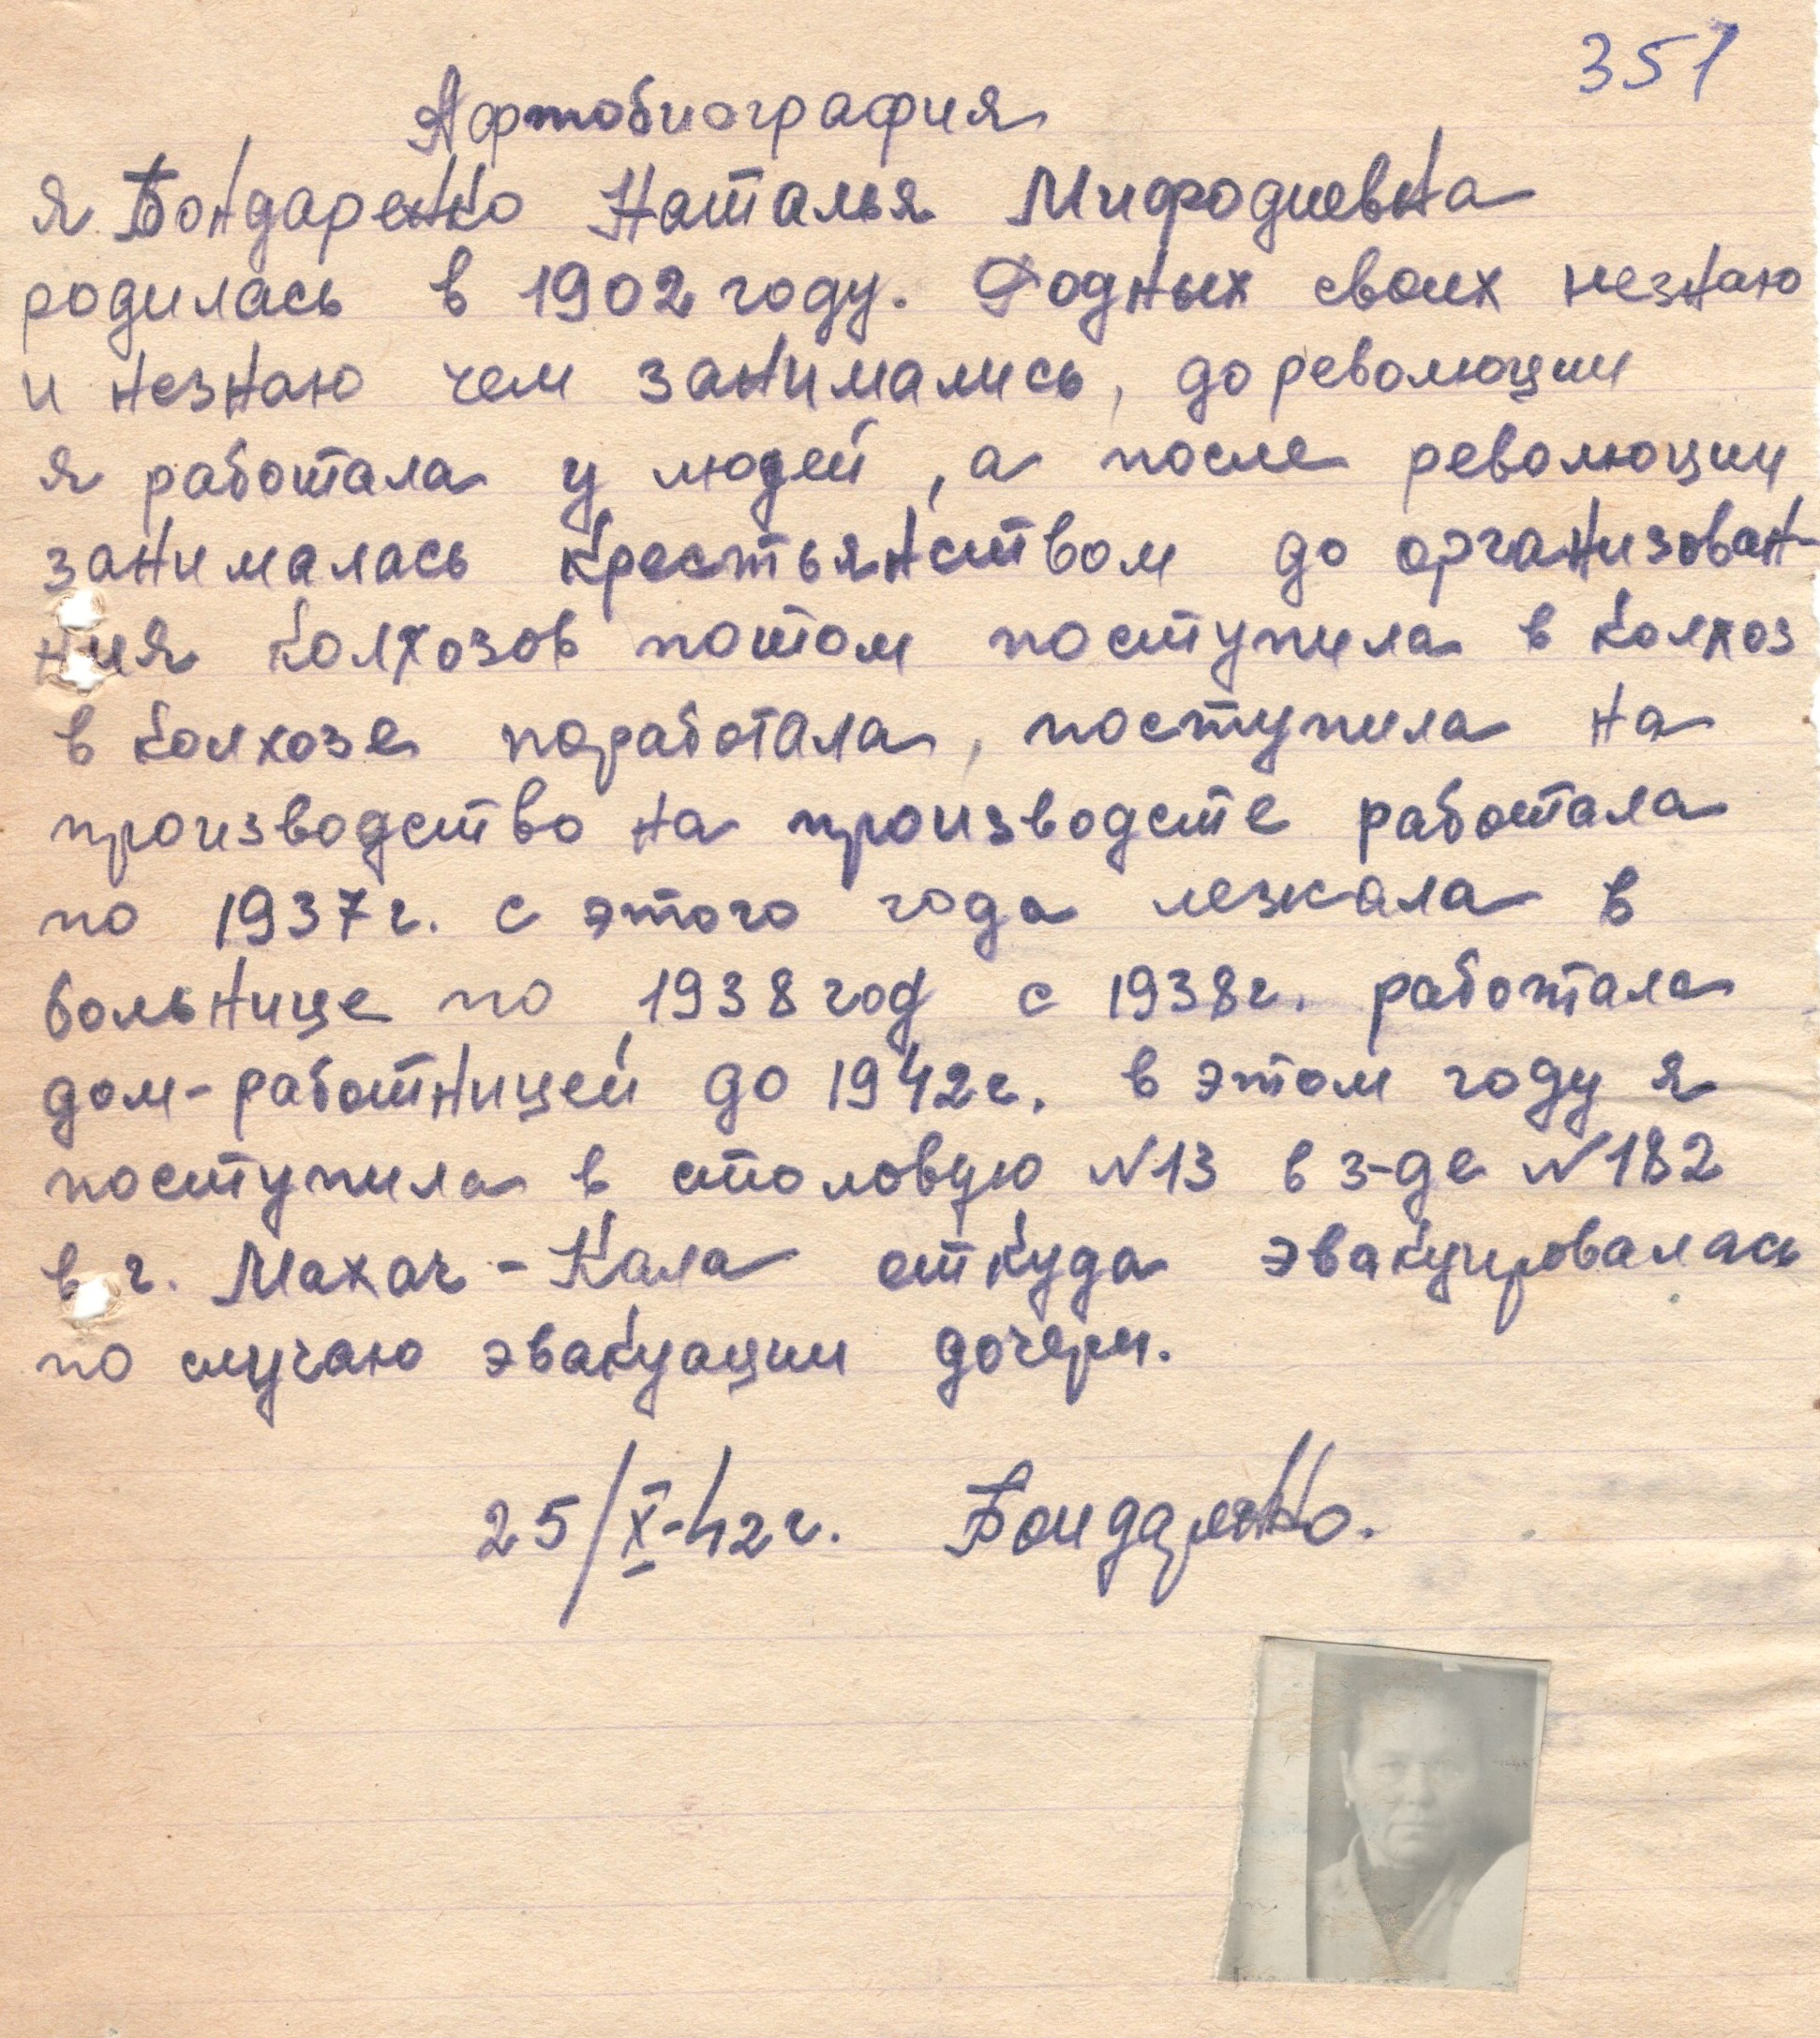 351
Афтобиография
я Бондаренко Наталья Мифодиевна
родилась в 1902 году. Родных своих незнаю
и незнаю чем занимались, до революции
я работала у людей, а после революции
занималась крестьянством до организован-
ния колхозов потом поступила в колхоз
в колхозе поработала, поступила на
производство на производсте работала
по 1937г. с этого года лежала в
больнице по 1938 год с 1938г. работала
дом-работницей до 1942г. в этом году я
поступила в столовую N13 в з-де N182
в г. Махач-Кала откуда эвакуировалась
по случаю эвакуации дочери.
25/X-42г. Бондаренко.